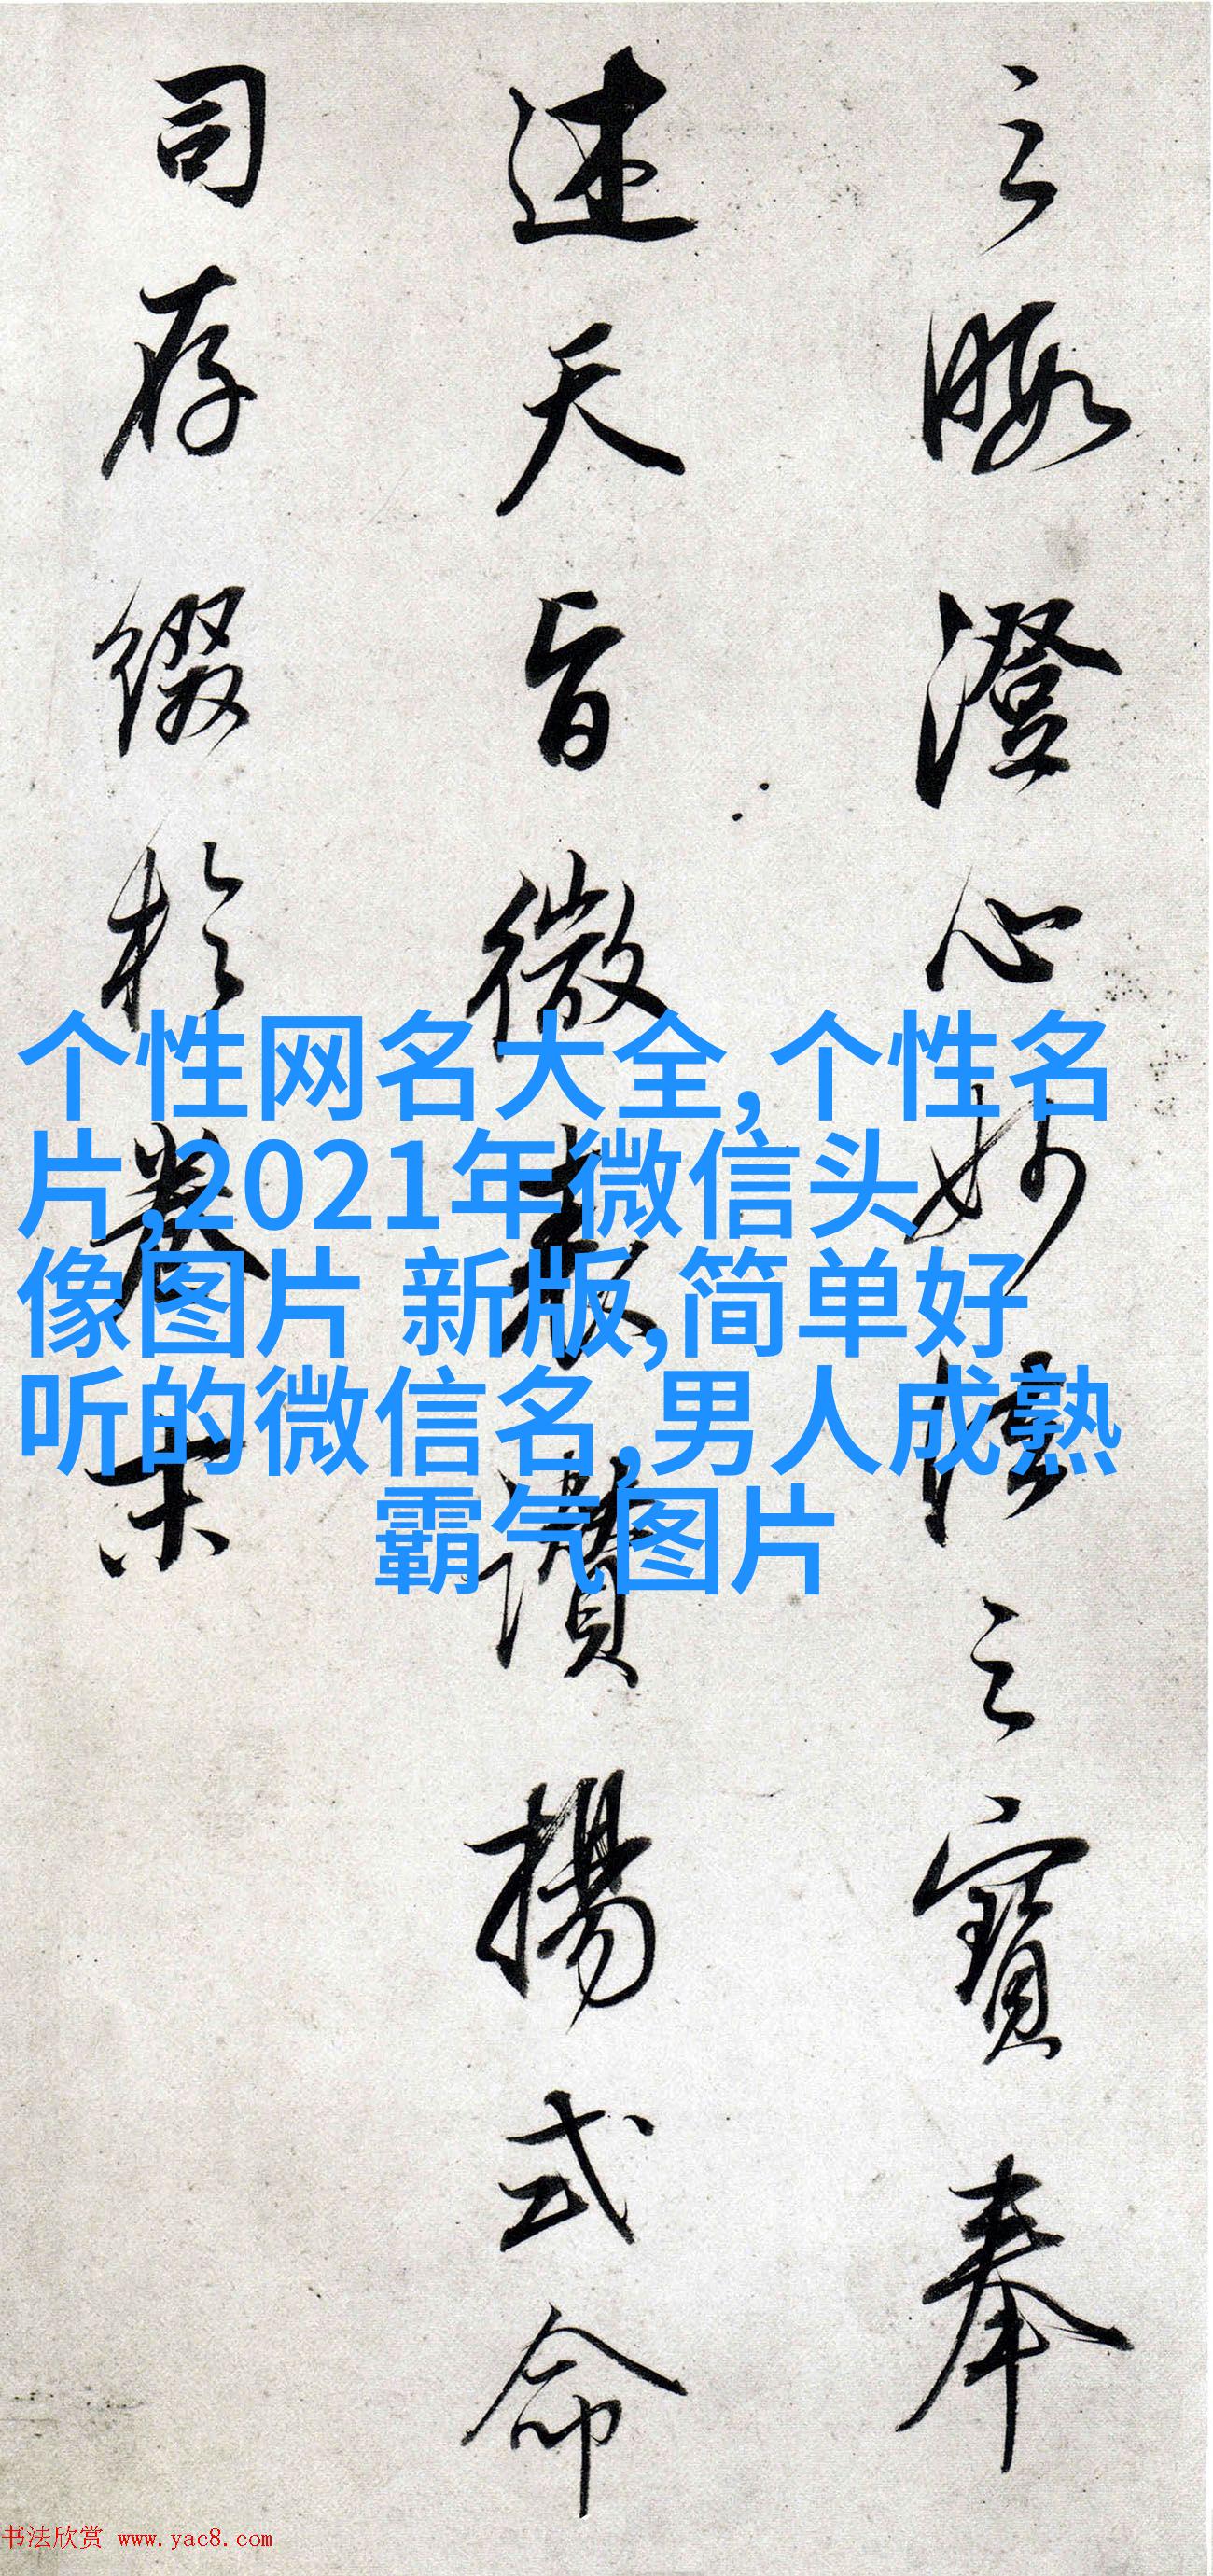 之暇澄心妙之寶奉
述天旨微表讚揚式命
司存綴於卷末
个性网名大全,个性名
片,2021年微信头
像图片 新版,简单好
听的微信名,男人成熟
霸气图片
书法欣赏 www.yac8.com